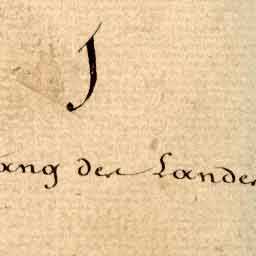 J
ang der Lander